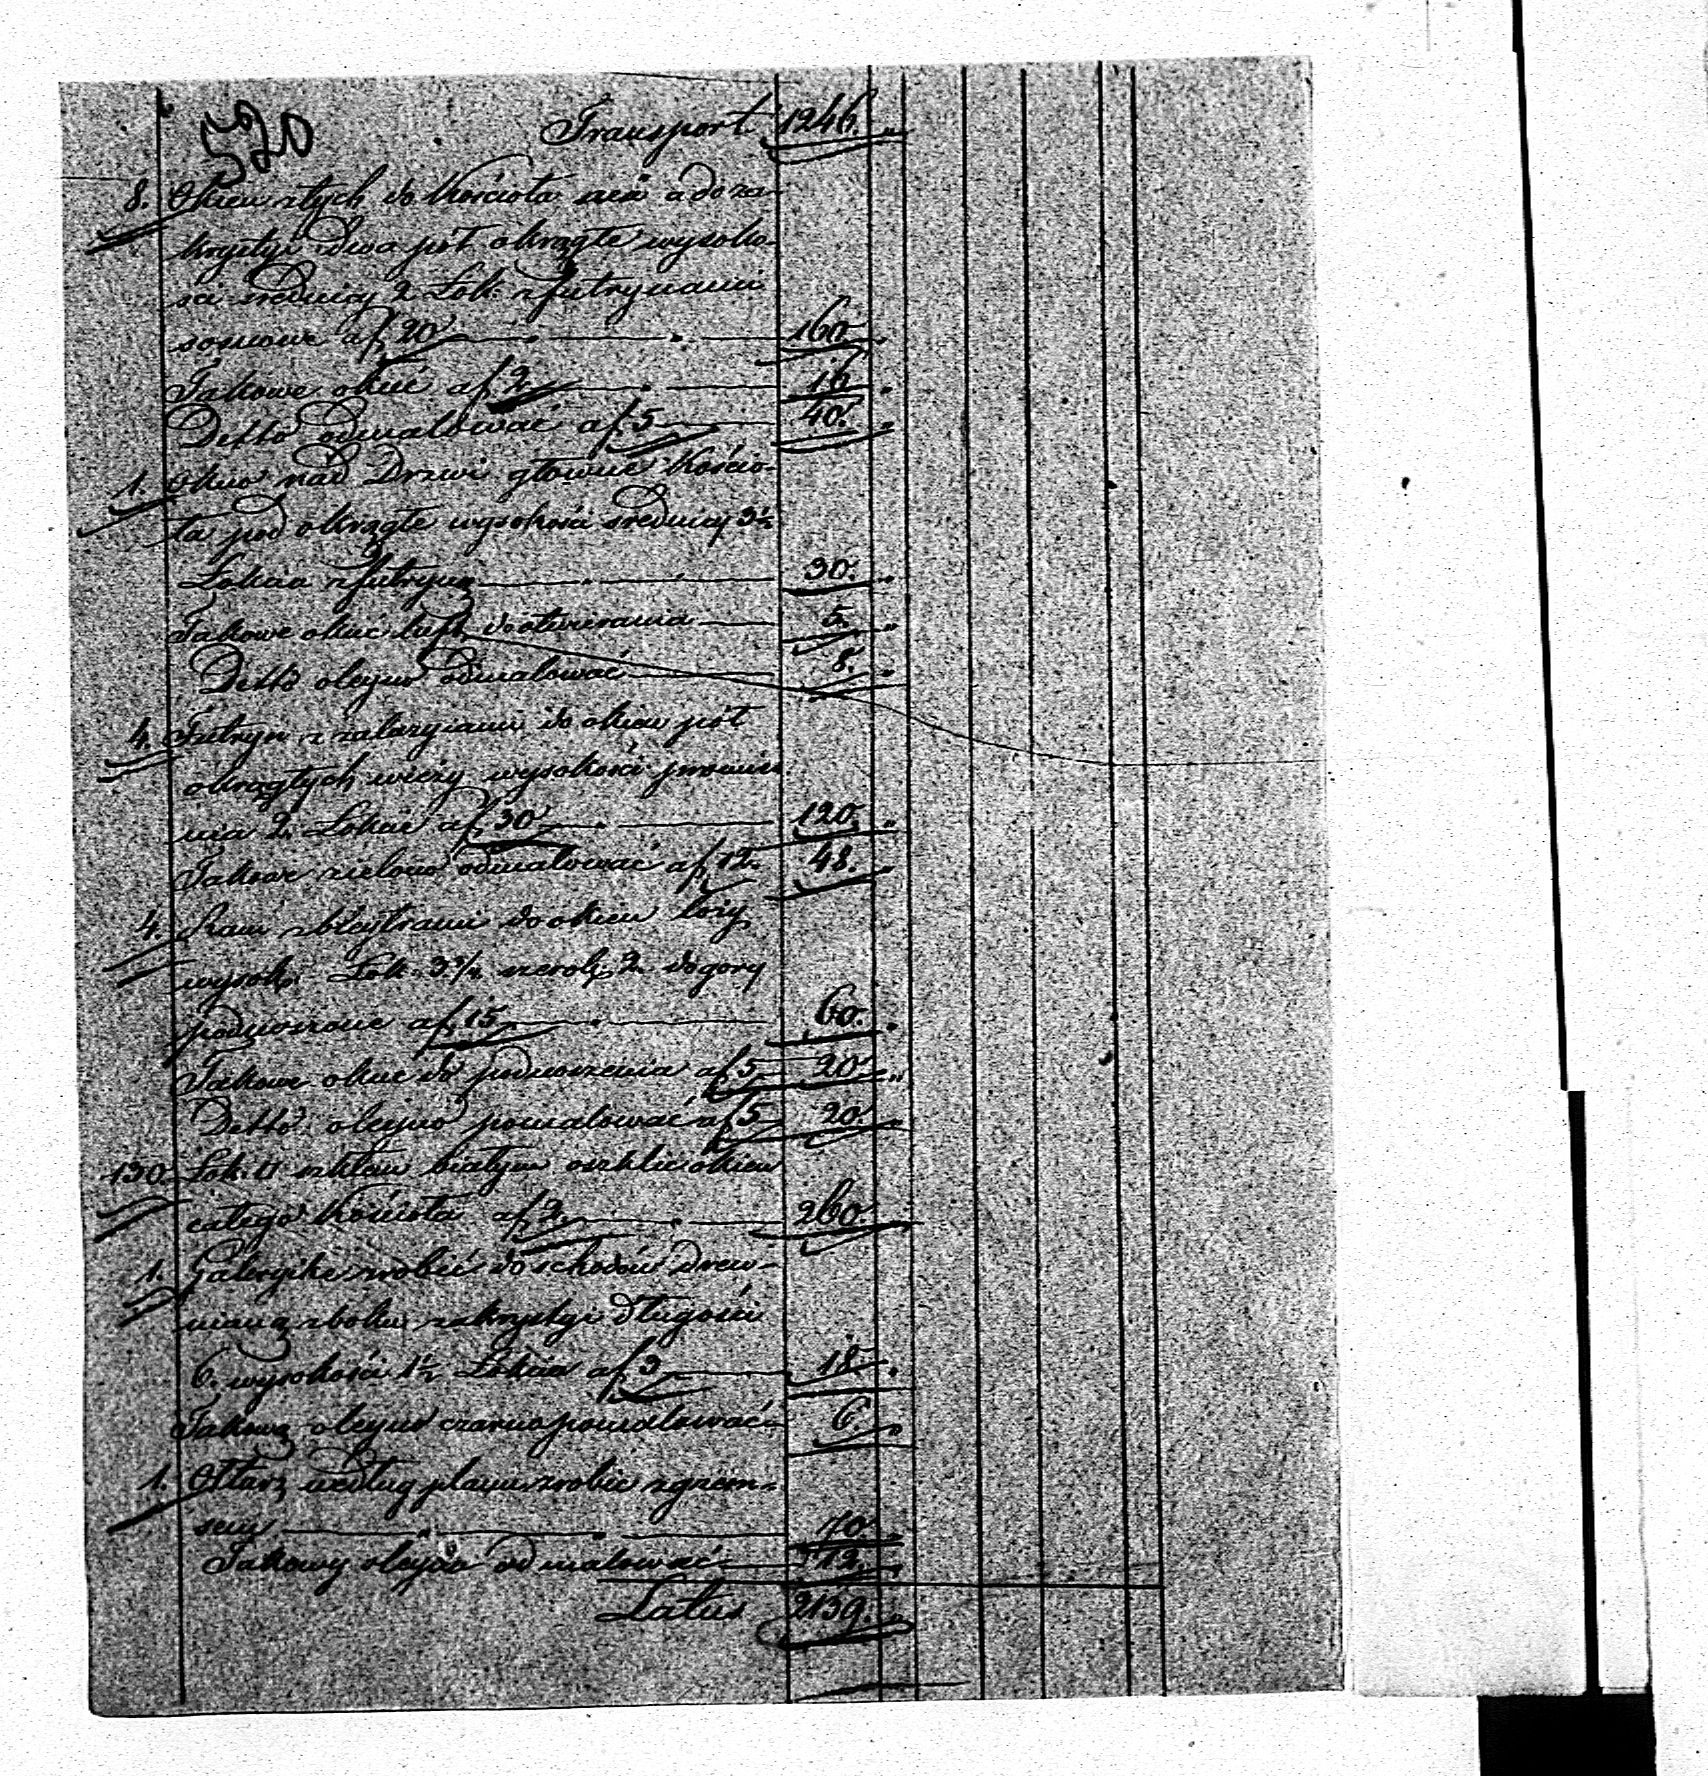 520
Transport 1246. „
8. Okien stych do Kościoła sześć a do za-
krystyi dwa pół okrągłe wysoko-
ści srednicy 2 Łok: z futrynami
sosnowe a f 20 — „ — „ — 160. „
Takowe okuć a f 2 — „ — 16 „
Detto odmalować a f 5 — 40. „
1. Okno nad Drzwi głowne Kościo-
ła pod okrągłe wysokości srednicy 3½
Łokcia z futryną — „ — 30. „
Takowe okuć luft do otwierania — 5. „
Detto olejno odmalować — 8. „
4. Futryn z zaluzyiami do okien pół
okrągłych wieży wysokości promie-
nia 2. Łokcie a f 30 — „ — 120. „
Takowe zielono odmalować a f 12. 48. „
4. Ram z blejtrami do okien loży
wysok: Łok: 3¾ szerok: 2. do gory
podnoszone a f 15 — „ — 60. „
Takowe okuc do podnoszenia a f 5 — 20 „
Detto olejno pomalować a f 5 20. „
130. Łok: □ szkłem białym oszklic okien
całego Kościoła a f 2. — „ — 260. „
1. Galeryike zrobić do schodów drew-
nianą z boku zakrystyi długości
6. wysokości 1½ Łokcia a f 3 — 18 „
Takową olejno czarno pomalować — 6 „
1. Ołtarz według planu zrobic z gzem-
sem — „ — „ — 70 „
Takowy olejno odmalować — 12. „
Latus 2139. „